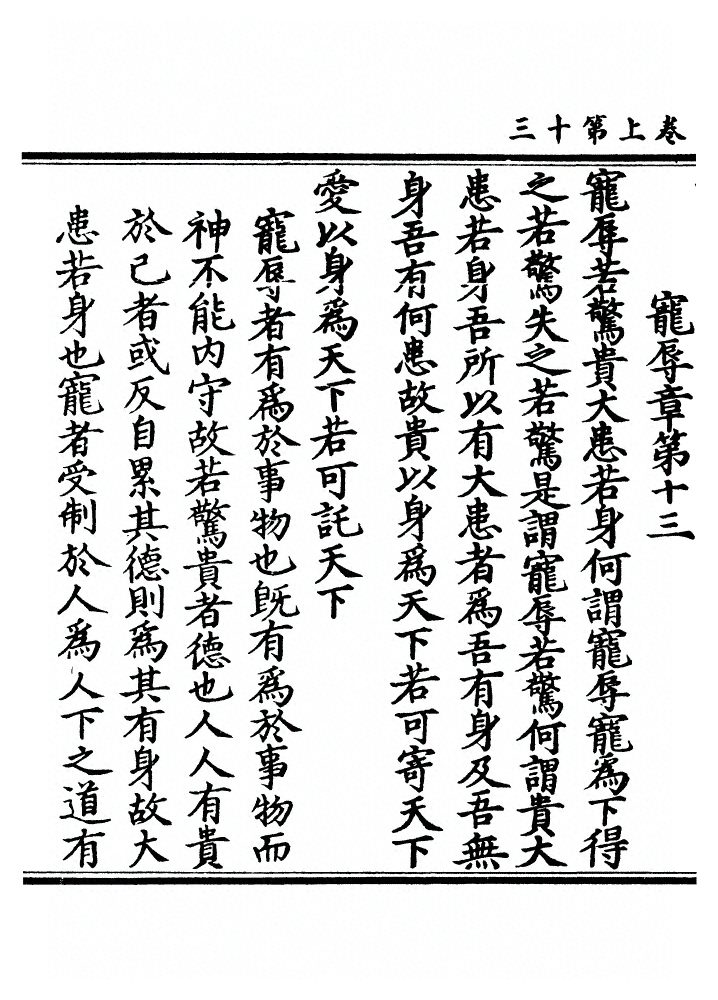 卷上第十三
寵辱章第十三
寵辱若驚貴大患若身何謂寵辱寵為下得
之若驚失之若驚是謂寵辱若驚何謂貴大
患若身吾所以有大患者為吾有身及吾無
身吾有何患故貴以身為天下若可寄天下
愛以身為天下若可託天下
寵辱者有為於事物也既有為於事物而
神不能内守故若驚貴者德也人人有貴
於己者或反自累其德則為其有身故大
患若身也寵者受制於人為人下之道有